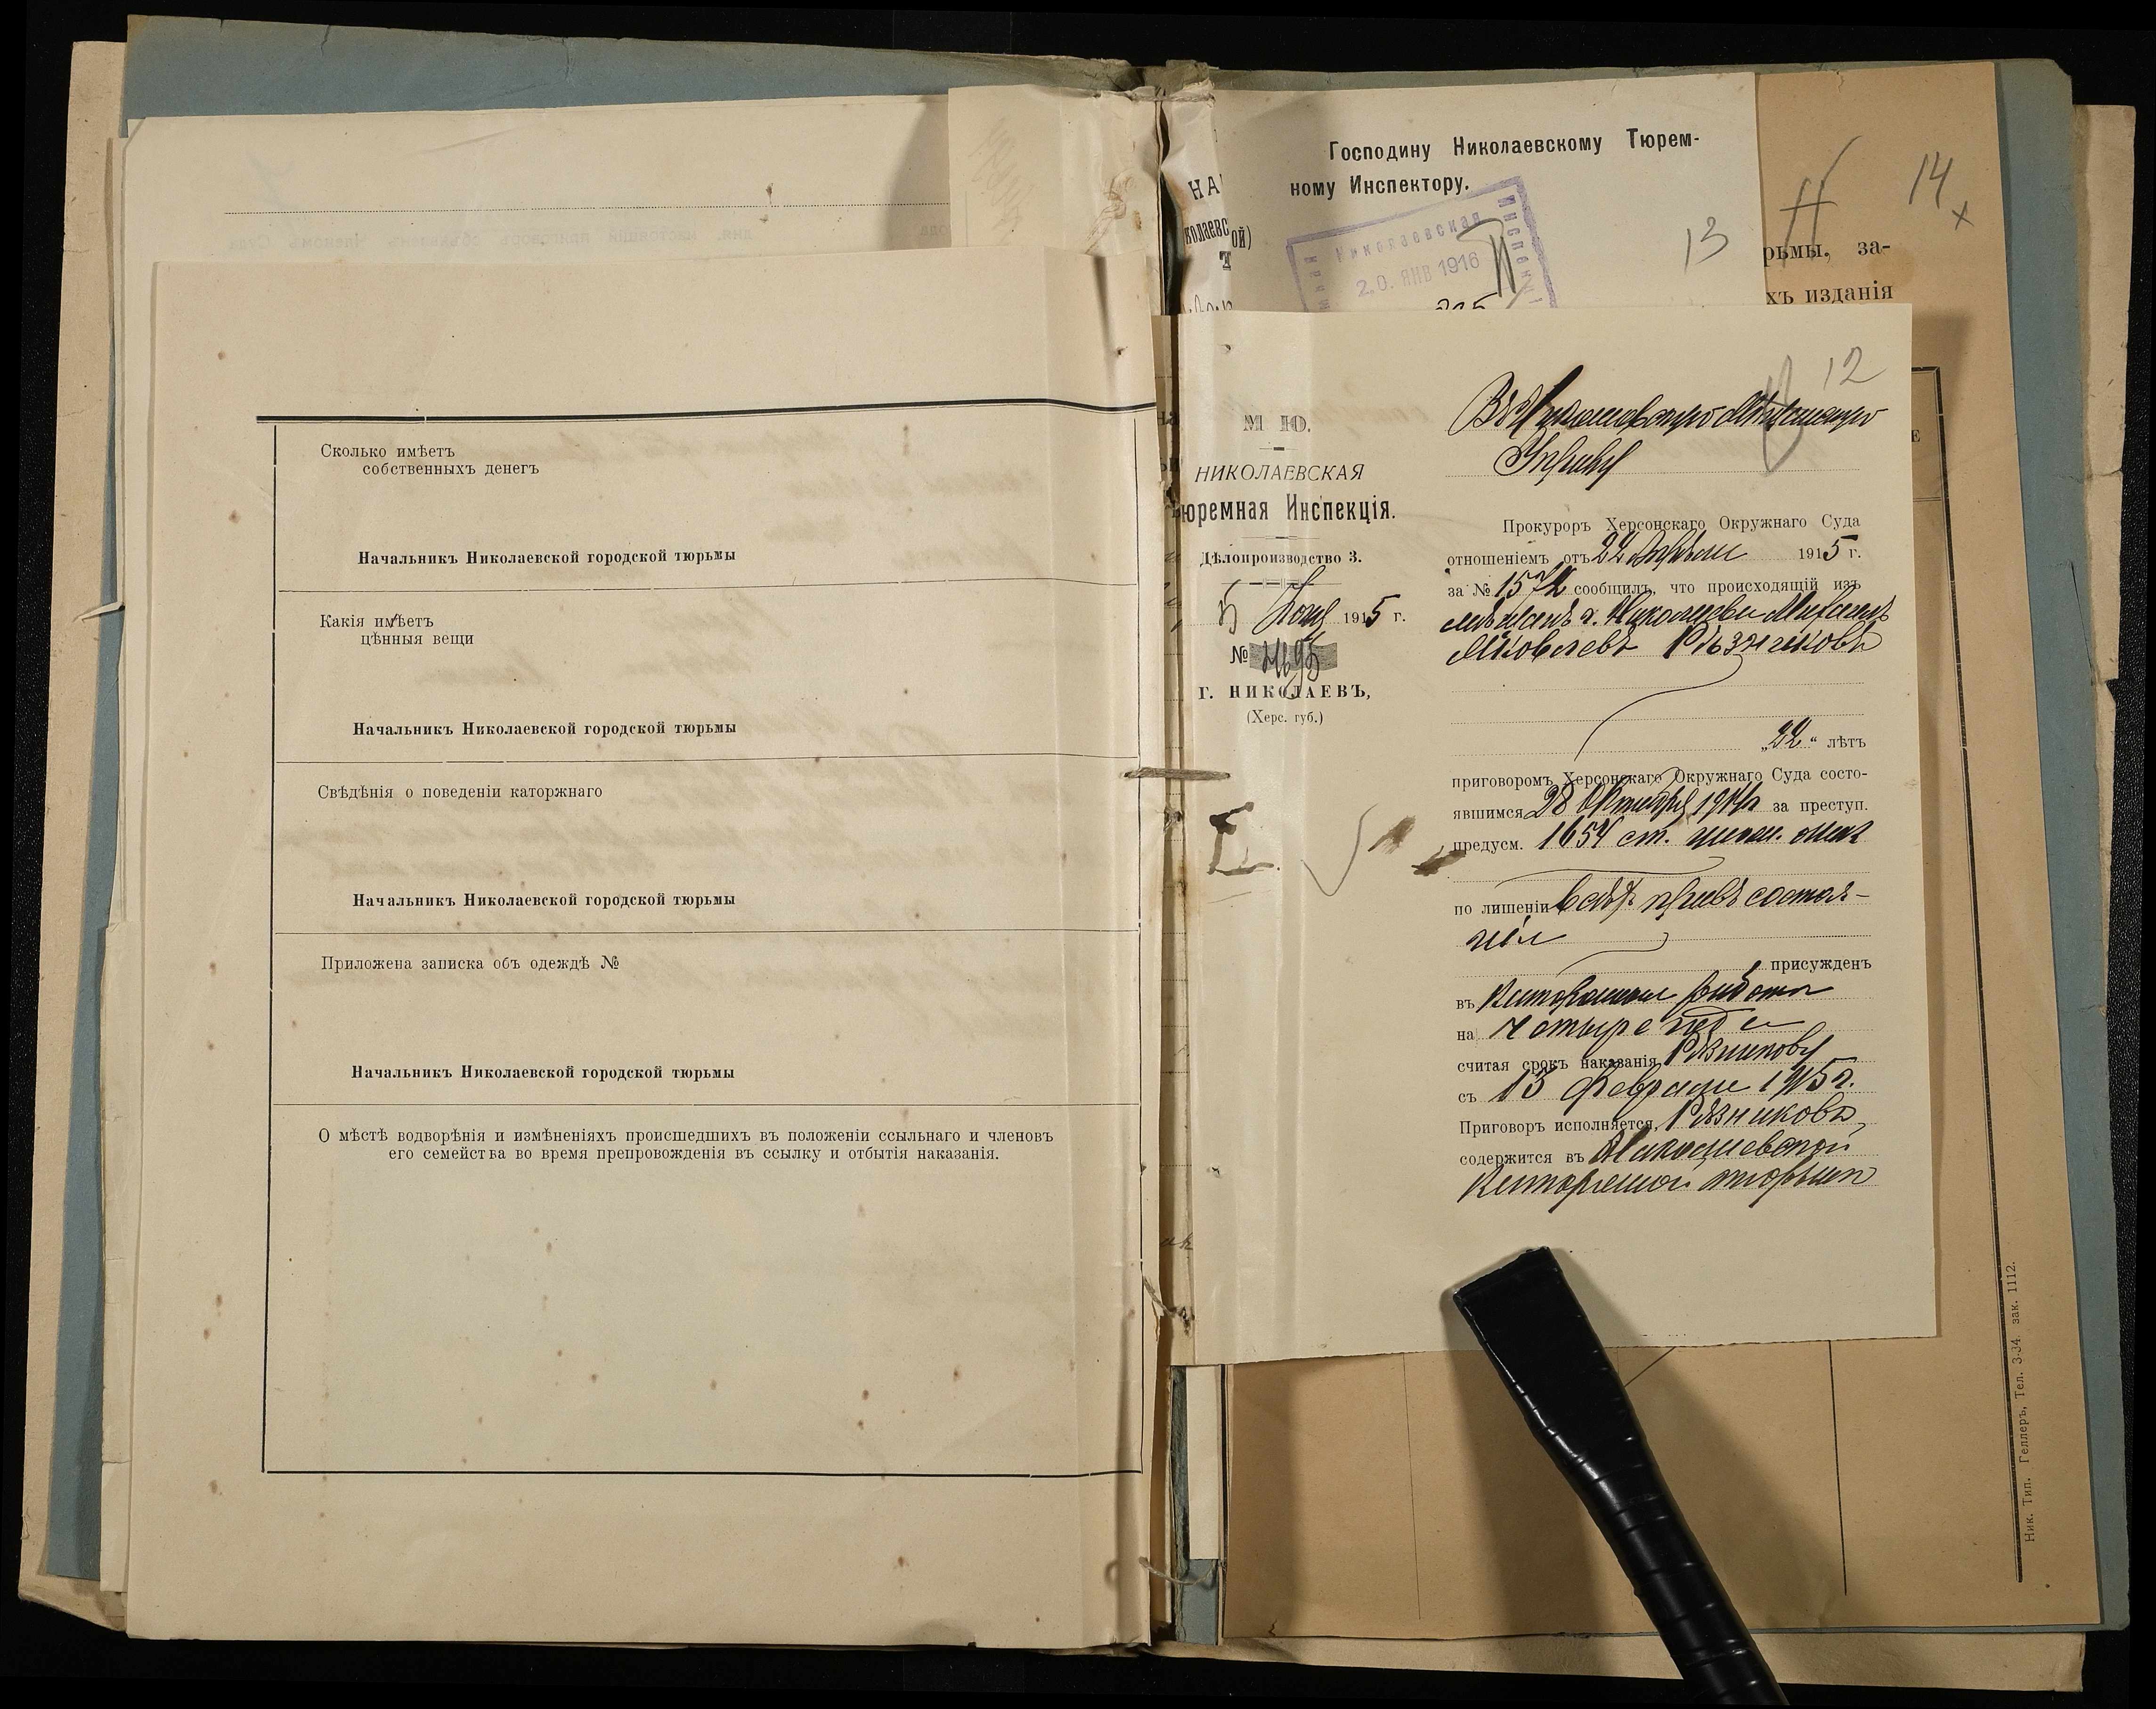 Сколько имѣетъ
собственныхъ денегъ
Начальникъ Николаевской городской тюрьмы
Какія имѣетъ
цѣнныя вещи
Начальникъ Николаевской городской тюрьмы
Свѣдѣнія о поведеніи каторжнаго
Начальникъ Николаевской городской тюрьмы
Приложена записка объ одеждѣ №
Начальникъ Николаевской городской тюрьмы
О мѣстѣ водворѣнія и измѣненіяхъ происшедшихъ въ положеніи ссыльнаго и членовъ
его семейства во время препровожденія въ ссылку и отбытія наказанія.
Господину Николаевскому Тюрем-
ному Инспектору.
Николаевская
20 ЯНВ 1916
13
14
рьмы, за-
хъ изданія
12
М Ю.
НИКОЛАЕВСКАЯ
юремная Инспекція.
Дѣлопроизводство 3.
1915 г.
№ 4695
Г. НИКОЛАЕВЪ,
(Херс. губ.)
Въ Николаевскую Мѣщанскую
Управу
Прокуроръ Херсонскаго Окружнаго Суда
отношеніемъ отъ 22 Апрѣля 1915 г.
за № 1572 сообщилъ, что происходящій изъ
мѣщанъ г. Николаева
Яковлевъ Рѣзниковъ
„22“ лѣтъ
приговоромъ Херсонскаго Окружнаго Суда состо-
явшимся 28 Октября 1914 г. за преступ.
предусм. 1654 ст. улож. о нак.
по лишеніи всѣхъ правъ состоя-
нія
присужденъ
въ каторжныя работы
на четыре года
считая срокъ наказанія Рѣзникову
съ 13 Февраля 1915 г.
Приговоръ исполняется, Рѣзниковъ
содержится въ Николаевской
каторжной тюрьмѣ
Ник. Тип. Геллеръ, Тел. 3-34. зак. 1112.